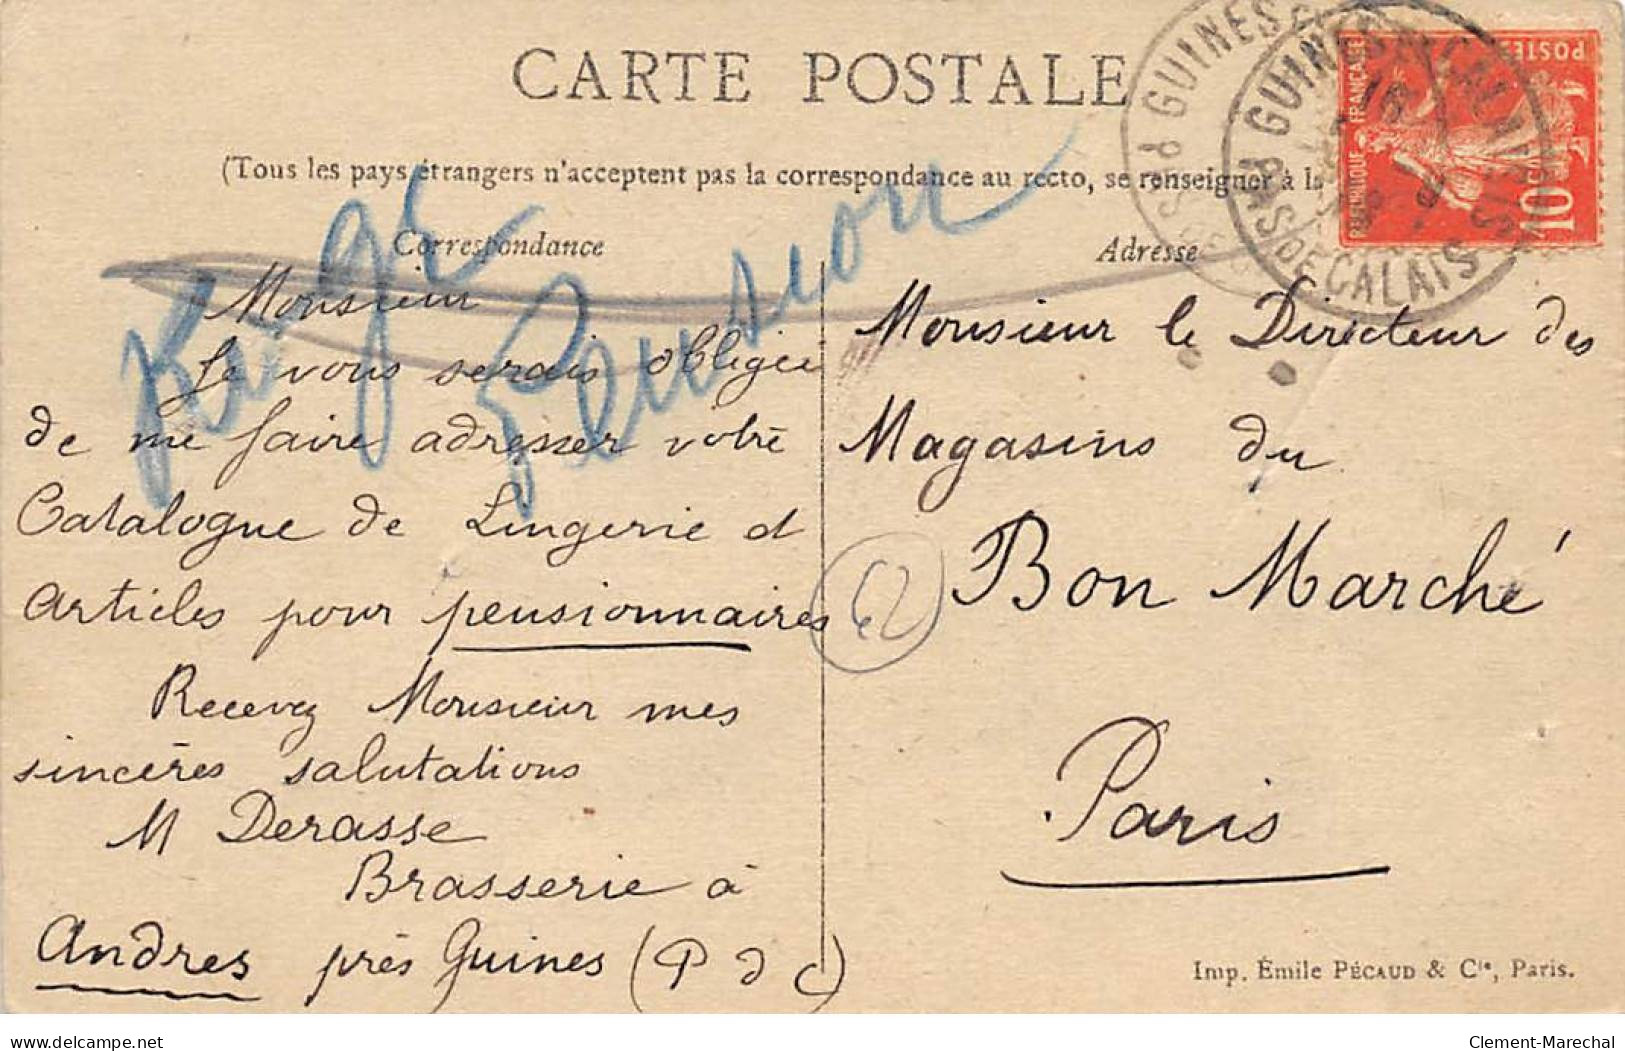 CARTE POSTALE
(Tous les pays étrangers n'acceptent pas la correspondance au recto, se renseigner à la
Correspondance
Adresse
Linge
Pension
Monsieur
Je vous serais obligée
de me faire adresser votre
Catalogue de Lingerie et
articles pour pensionnaires
Recevez Monsieur mes
sincères salutations
M Derasse
Brasserie à
Andres près Guines (P d C)
Monsieur le Directeur des
Magasins du
Bon Marché
Paris
62
GUINES EN CALAISIS
PAS DE CALAIS
REPUBLIQUE FRANÇAISE
POSTES
10
Imp. Émile PÉCAUD & Cie, Paris.
www.delcampe.net
Clement-Marechal